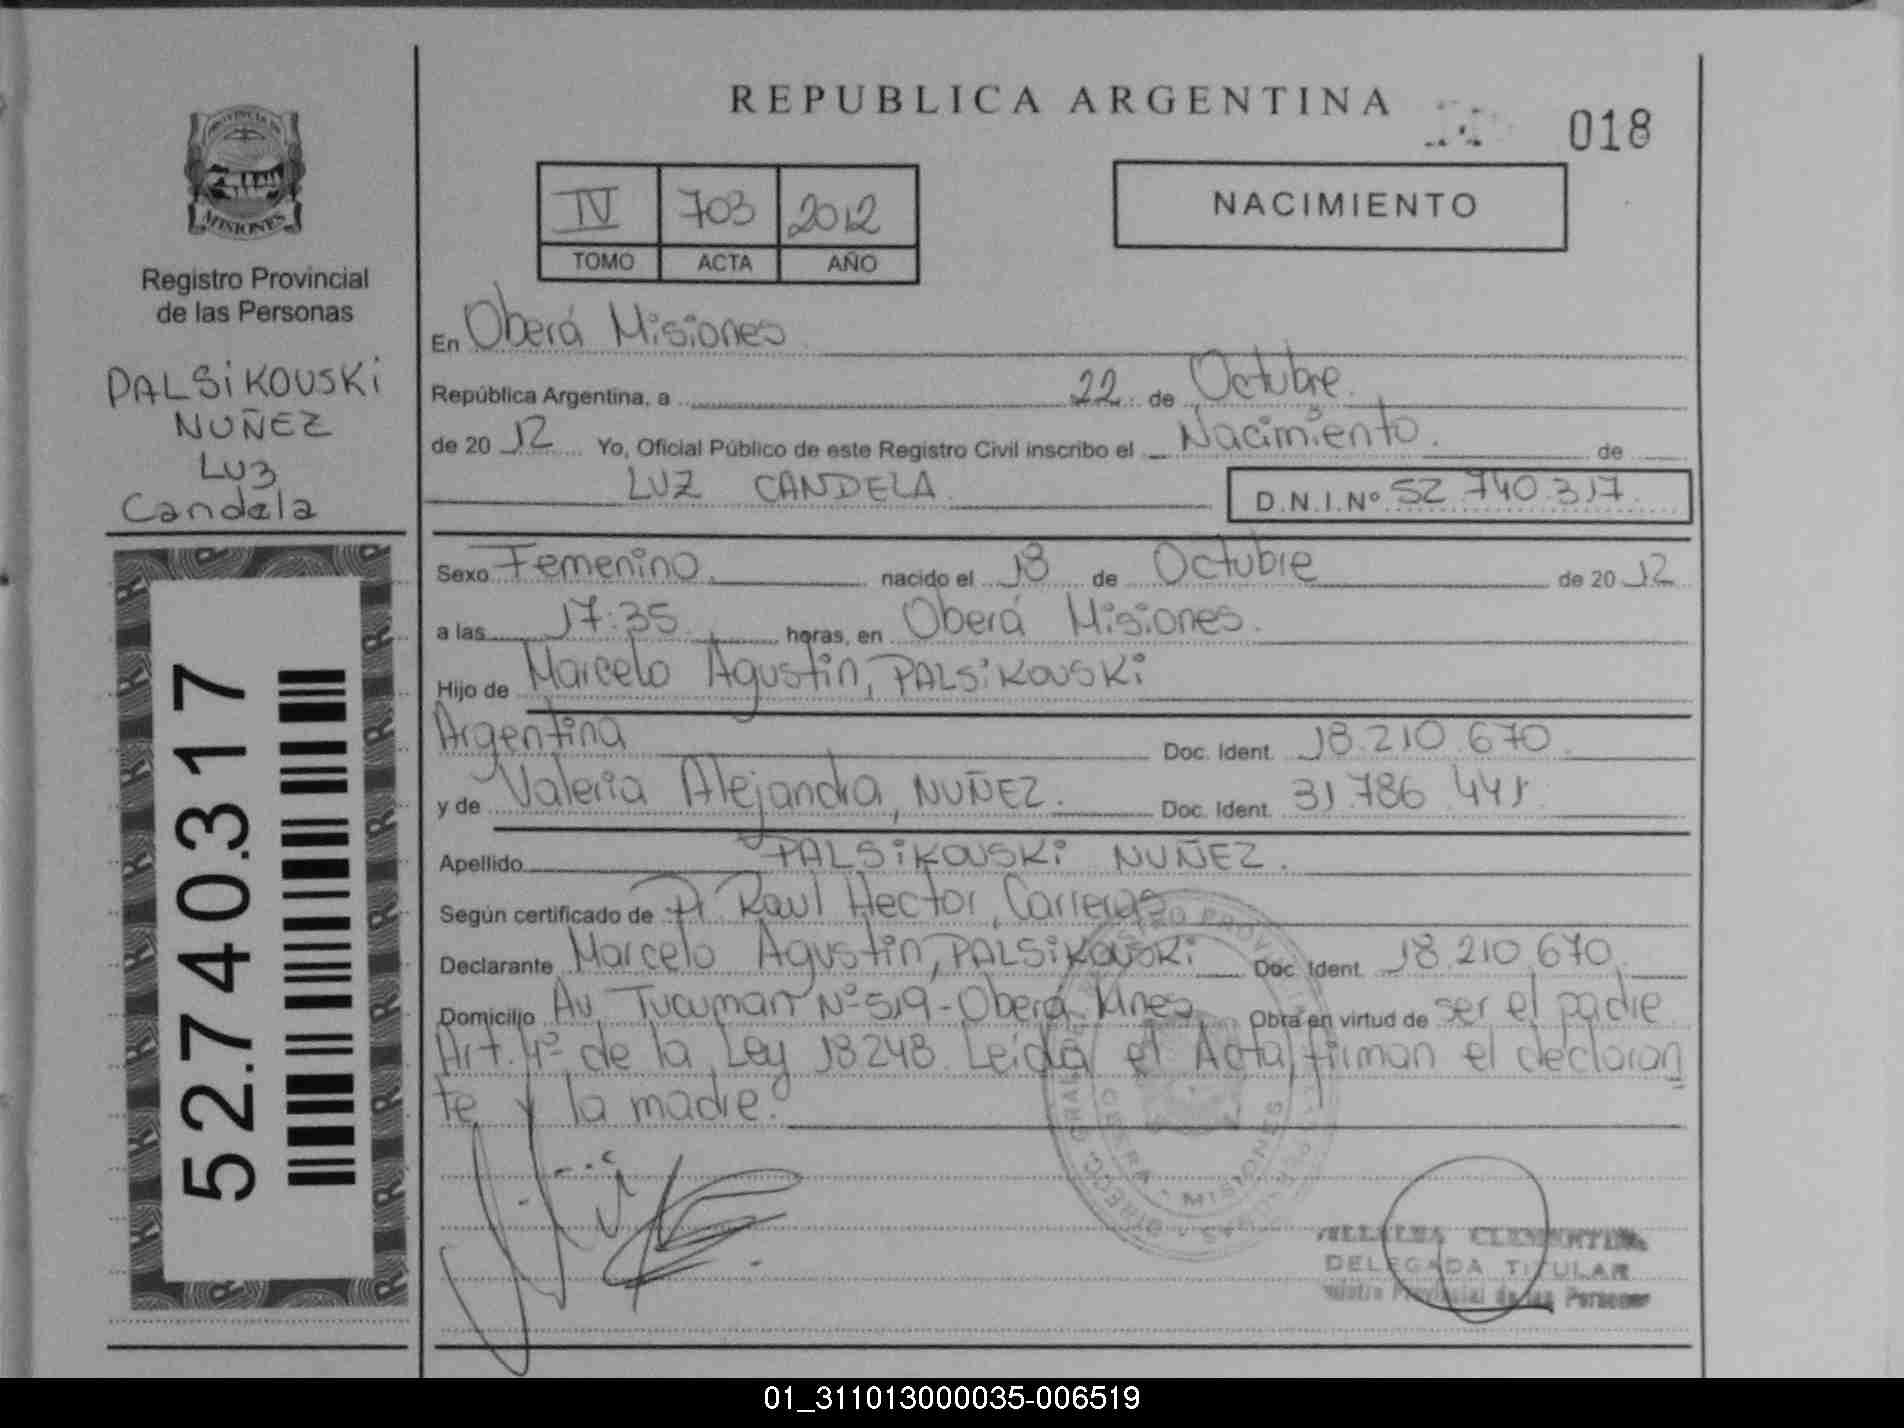 REPUBLICA ARGENTINA
018
PROVINCIA DE
MISIONES
Registro Provincial
de las Personas
PALSiKOUSKi
NUÑEZ
LUZ
Candela
52.740.317
IV 703 2012
TOMO ACTA AÑO
NACIMIENTO
En Oberá Misiones
República Argentina, a 22 de Octubre.
de 20 12 Yo, Oficial Público de este Registro Civil inscribo el Nacimiento. de
LUZ CANDELA D.N.I.Nº 52.740.317.
Sexo Femenino nacido el 18 de Octubre de 20 12
a las 17:35 horas, en Oberá Misiones.
Hijo de Marcelo Agustin, PALSiKOUSKi
Argentina Doc. Ident. 18.210.670.
y de Valeria Alejandra, NUÑEZ. Doc. Ident. 31.786.441.
Apellido PALSiKOUSKi NUÑEZ.
Según certificado de Raul Hector, Carreras
Declarante Marcelo Agustin, PALSiKOUSKi Doc. Ident. 18.210.670.
Domicilio Av. Tucuman Nº 519-Oberá Mnes Obra en virtud de ser el padre
Art. 4º de la Ley 18248. Leida el Acta firman el declaran
te y la madre.
CENTRAL MISIONES
VILLALBA CLEMENTINA
DELEGADA TITULAR
Registro Provincial de las Personas
01_311013000035-006519